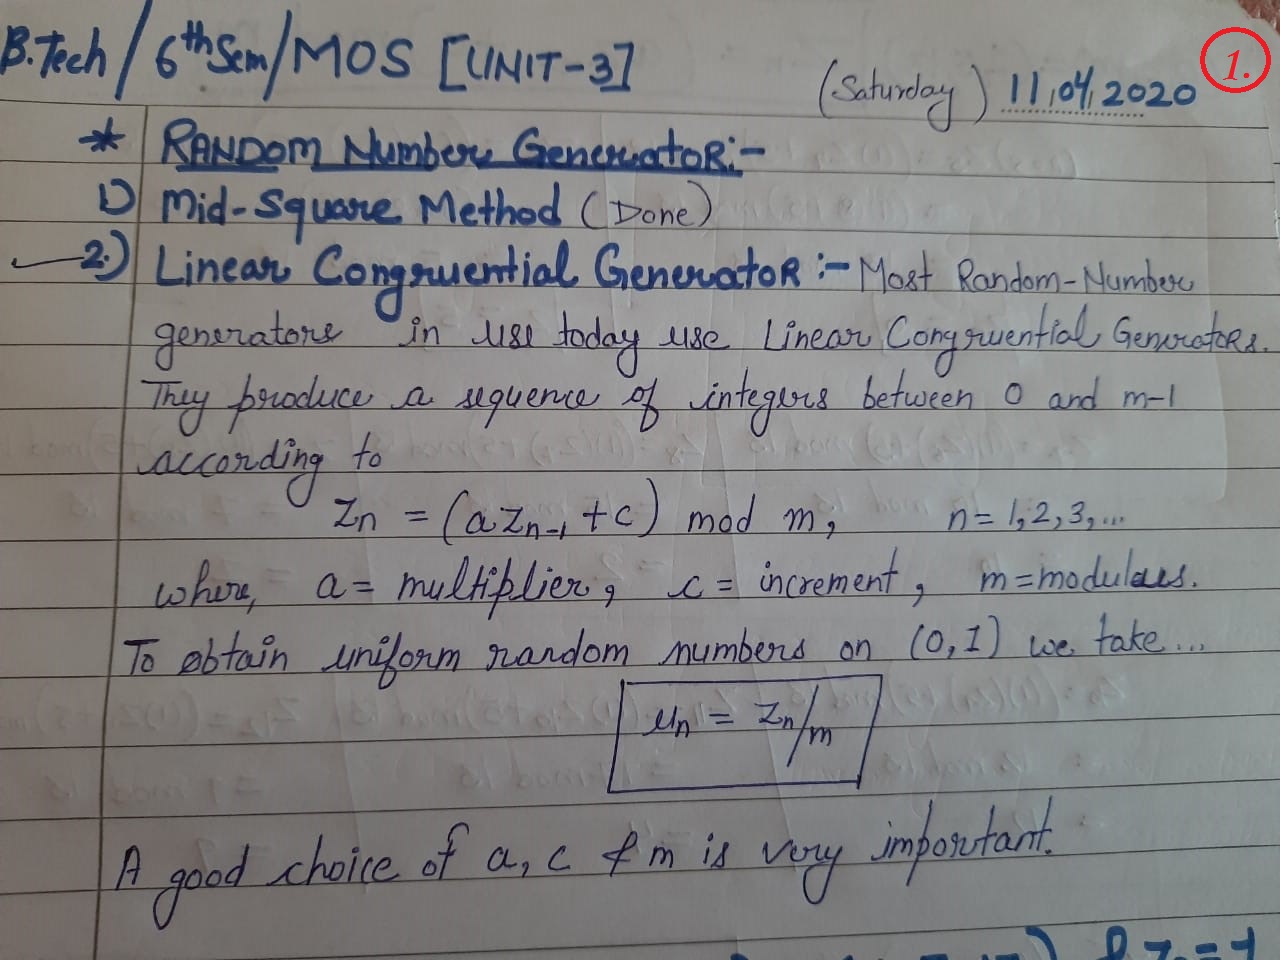 B.Tech / 6th Sem / MOS [UNIT-3]
(Saturday) 11/04/2020
1.
* RANDOM Number GeneratoR:-
1) Mid-Square Method (Done)
2.) Linear Congruential GeneratoR :- Most Random-Number
generators in use today use Linear Congruential Generators.
They produce a sequence of integers between 0 and m-1
according to
Zn = (a Zn-1 + c) mod m, n = 1, 2, 3, ...
where, a = multiplier, c = increment, m = modulus.
To obtain uniform random numbers on (0,1) we take...
un = Zn/m
A good choice of a, c & m is very important.